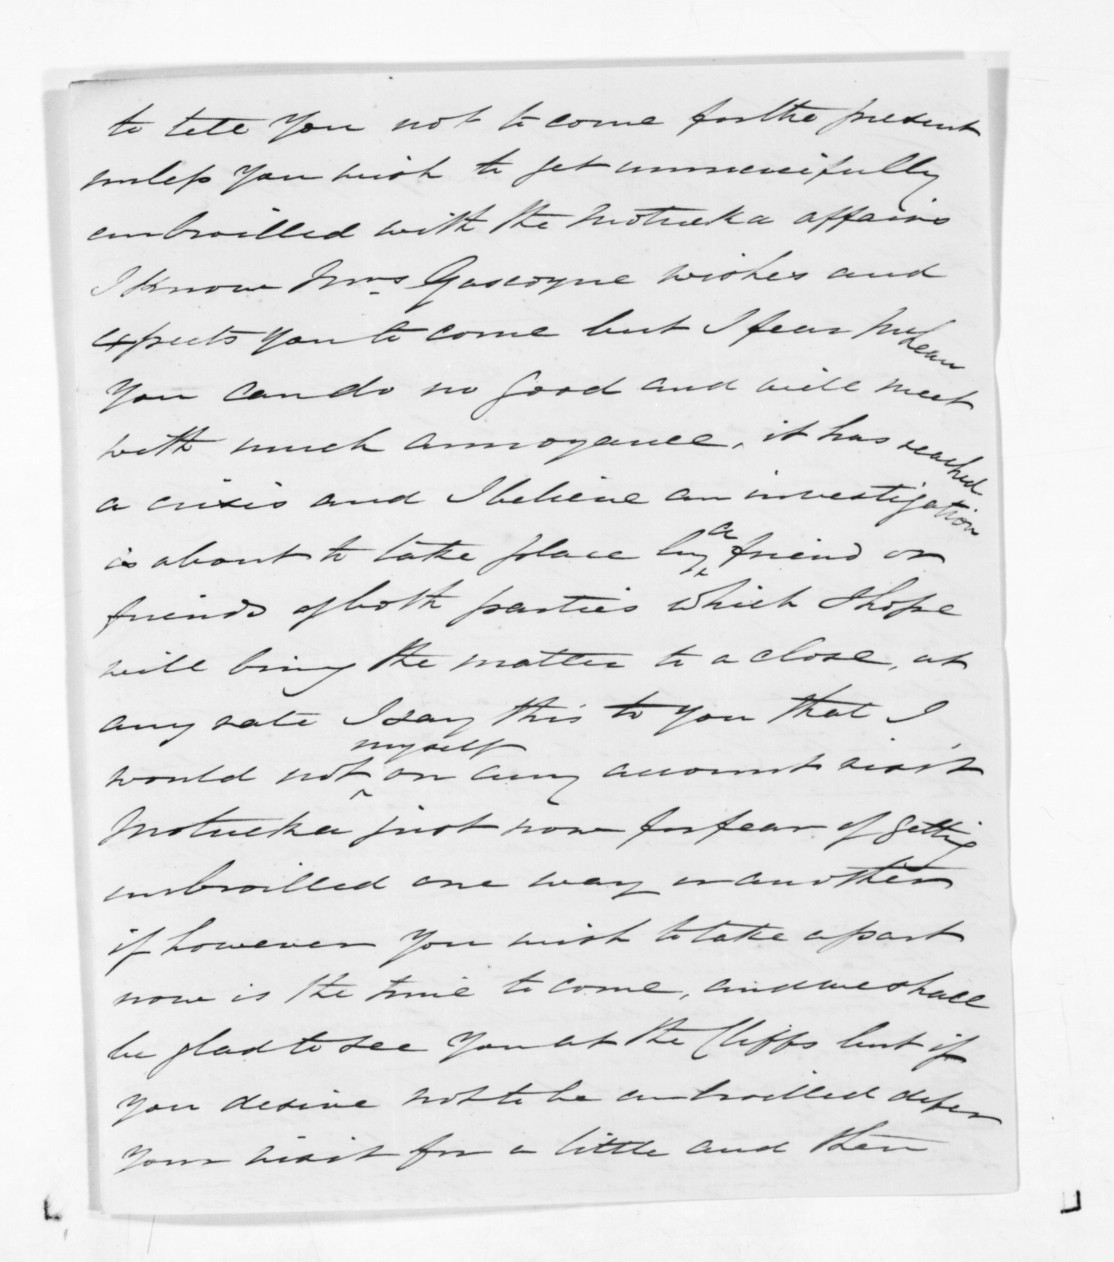 to tell you not to come for the present
unless you wish to get unmercifully
embroilled with the Motueka affairs
I know Mrs. Gascoyne wishes and
expects you to come but I fear McLean
you can do no good and will meet
with much annoyance, it has reached
a crisis and I believe an investigation
is about to take place by a friend or
friends of both parties which I hope
will bring the matter to a close, at
any rate I say this to you that I,
would not myself on any account visit
Motueka just now for fear of getting
embroilled one way or another
if however you wish to take a part
now is the time to come, and we shall
be glad to see you at the Cliffs but if
you desire not to be embroilled defer
your visit for a little and then